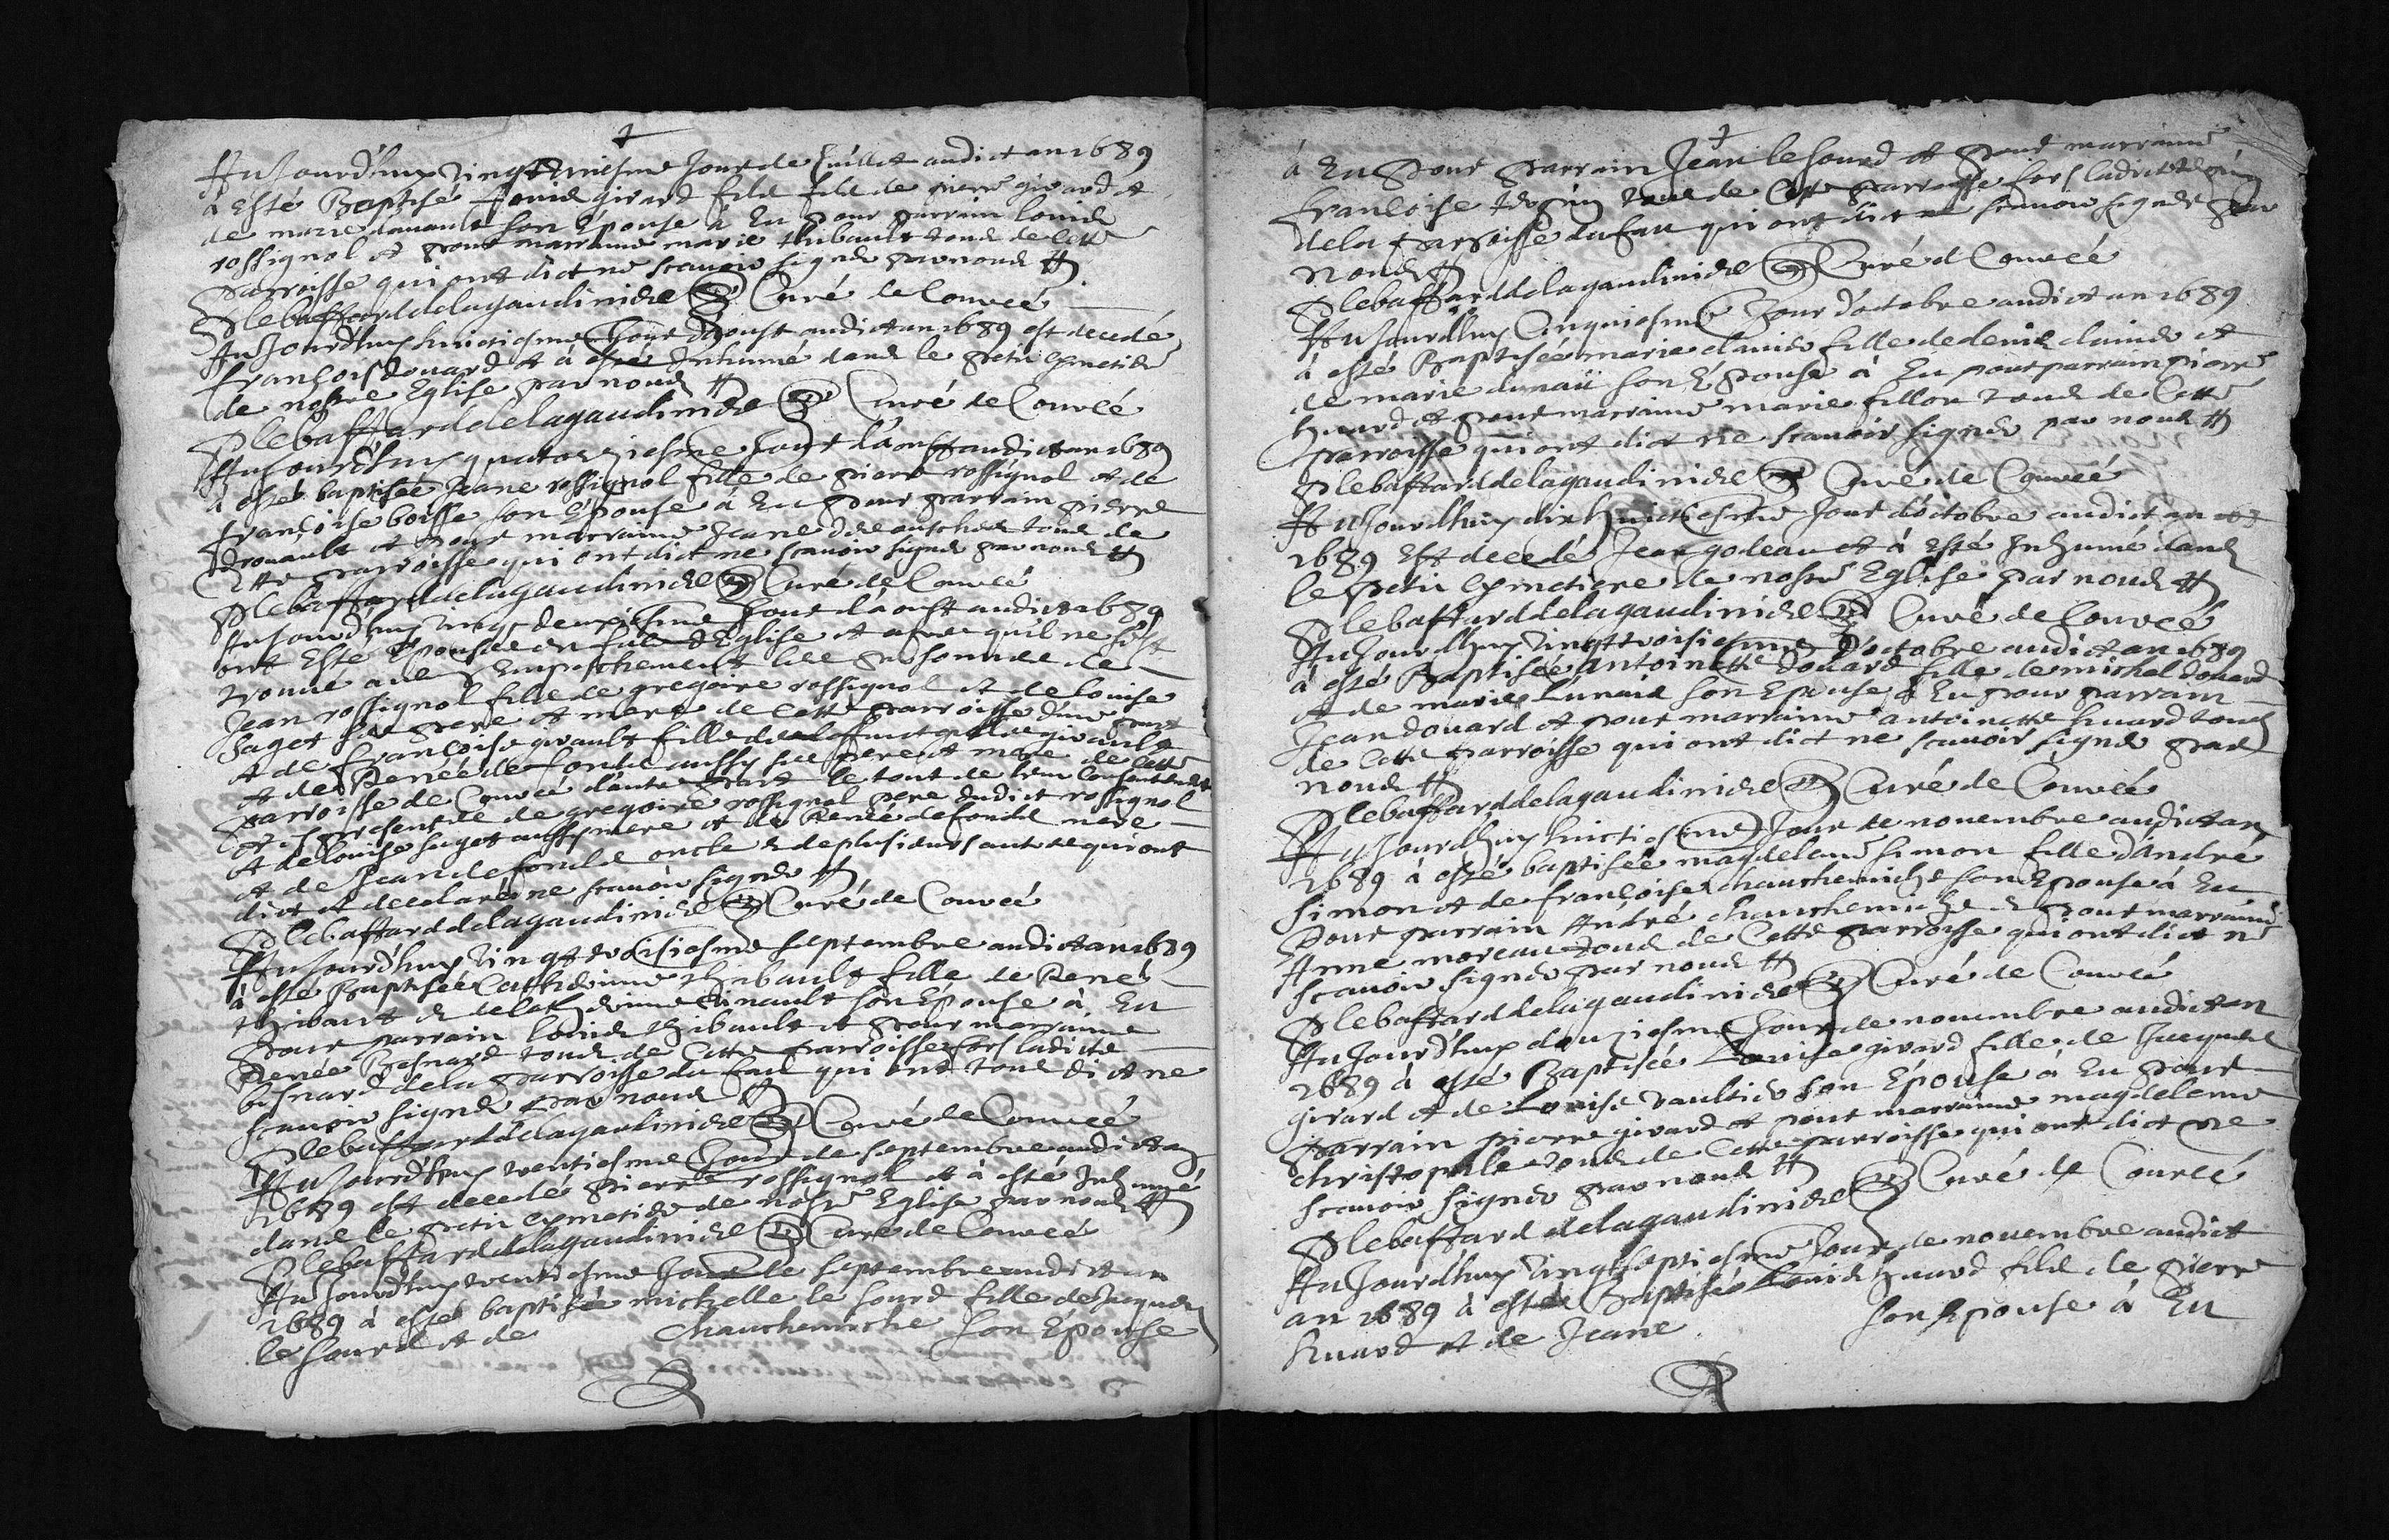 Aujourd'huy vingt uniesme Jour de Juillet audict an 1689
à Esté Baptisé Louis girard fils de pierre girard et
de marie son Epouse à Eu pour parrain louis
rossignol et pour marraine marie thibault tous de cette
parroisse qui ont dict ne scauoir signer par nous
P lebaffard delagaudiniere Curé de Couucé
Aujourd'huy huictiesme Jour d'aoust audict an 1689 est decedé
françois douard et à esté Inhumé dans le petit Cymetiere
de nostre Eglise par nous
P lebaffard delagaudiniere Curé de Couucé
Aujourd'huy quatorziesme Jour d'aoust audict an 1689
à esté baptisée Jeane rossignol fille de pierre rossignol et de
françoise boisse son Epouse à Eu pour parrain pierre
drouault et pour marraine Jeane tous de
Cette parroisse qui ont dict ne scauoir signer par nous
P lebaffard delagaudiniere Curé de Couucé
Aujourd'huy vingt deuxiesme Jour d'aoust audict 1689
ont Esté Epousée en d'Eglise et apres quil ne s'est
trouué aucun Empeschement les personnes de
Jean rossignol fils de gregoire rossignol et de louise
saget ses pere et mere de cette parroisse d'une part
et de françoise girault fille de deffunct girault
et de Renée de fonds aussy ses pere et mere de cette
parroisse de Couucé d'autre part le tout de leur Consentement
et presence de gregoire rossignol pere dudict rossignol
et de louise saget aussy mere et de Renée de fonds mere
et de Jean de fonds oncle & de plusieurs autre qui ont
dict et declaré ne scauoir signer
P lebaffard delagaudiniere Curé de Couucé
Aujourd'huy vingt troisiesme septembre audict an 1689
à esté Baptisée Catherinne thibault fille de René
thibault & de Catherinne son Epouse à Eu
pour parrain louis thibault et pour marraine
Renée Besnard tous de Cette parroisse fors ladicte
besnard de la parroisse du fau qui ont tous dict ne
scauoir signer par nous
P lebaffard delagaudiniere Curé de Couucé
Aujourd'huy trentiesme Jour de septembre audict an
1689 est decedé pierre rossignol et à esté Inhumé
dans le petit cymetiere de nostre Eglise par nous
P lebaffard delagaudiniere Curé de Couucé
Aujourd'huy trentiesme Jour de septembre audict an
1689 à esté baptisée michelle le sourd fille de Jacques
le sourd et de Chauchemiche son Epouse
à Eu pour parrain Jean le sourd et pour marraine
françoise tous de Cette parroisse fors ladicte
de la parroisse du fau qui ont dict ne scauoir signer par
nous
P lebaffard delagaudiniere Curé de Couucé
Aujourd'huy Cinquiesme Jour d'octobre audict an 1689
à esté Baptisée marie dauid fille de denis dauid et
de marie son Epouse à Eu pour parrain pierre
huard et pour marraine marie fillon tous de Cette
parroisse qui ont dict ne scauoir signer par nous
P lebaffard delagaudiniere Curé de Couucé
Aujourdhuy dix huictiesme Jour d'octobre audict an
1689 Est decedé Jean godeau et à Esté Inhumé dans
le petit cymetiere de nostre Eglise par nous
P lebaffard delagaudiniere Curé de Couucé
Aujourdhuy vingt troisiesme d'octobre audict an 1689
à esté Baptisée antoinette douard fille de michel douard
et de marie son Epouse à Eu pour parrain
Jean douard et pour marraine antoinette huard tous
de Cette parroisse qui ont dict ne scauoir signer par
nous
P lebaffard delagaudiniere Curé de Couucé
Aujourdhuy huictiesme Jour de nouembre audict an
1689 à esté baptisée magdelene simon fille d'andré
simon et de françoise chauchemiche son Epouse à Eu
pour parrain André chauchemiche & pour marraine
Anne moreau tous de Cette parroisse qui ont dict ne
scauoir signer par nous
P lebaffard delagaudiniere Curé de Couucé
Aujourd'huy douziesme Jour de nouembre audict an
1689 à esté Baptisée Louise girard fille de Jacques
girard et de Louise vaultier son Epouse à Eu pour
parrain pierre girard et pour marraine magdelene
christophle tous de Cette parroisse qui ont dict ne
scauoir signer par nous
P lebaffard delagaudiniere Curé de Couucé
Aujourdhuy vingt septiesme Jour de nouembre audict
an 1689 à esté Baptisé Louis huard fils de pierre
huard et de Jeane son Epouse à Eu